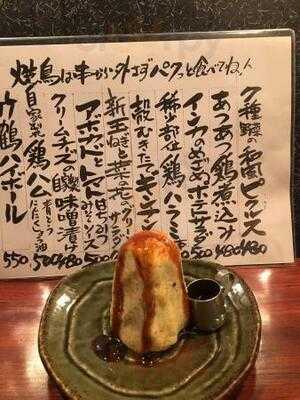 焼鳥は串から外さずパクっと食べてね!
7種類の和風ピクルス 480
あつあつ鶏煮込み 480
インカのめざめポテトサラダ 500
希少部位鶏ハラミ
殻むきたてギンナン
新玉ねぎと菜の花の
サラダ
アボカドとトマト
はちみつ
みそソース 580
クリームチーズの自家製味噌漬け
自家製鶏ハム
青じそ
にんにく
ラー油 500
ウ鶴ハイボール 550